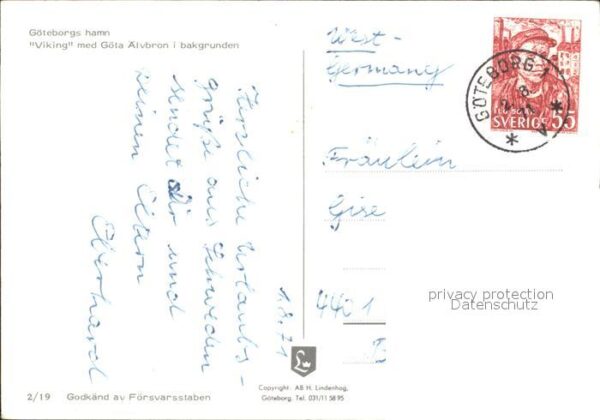 Göteborgs hamn
"Viking" med Göta Älvbron i bakgrunden
Herzliche Urlaubs-
grüße aus Schweden
sendet Dir und
Deinen Eltern
Eberhard
1.8.71
West-
Germany
Fräulein
Gise
4401
B
GÖTEBORG 1
SVERIGE 55
privacy protection
Datenschutz
Copyright: AB H. Lindenhag,
Göteborg. Tel. 031/11 58 95
2/19 Godkänd av Försvarsstaben